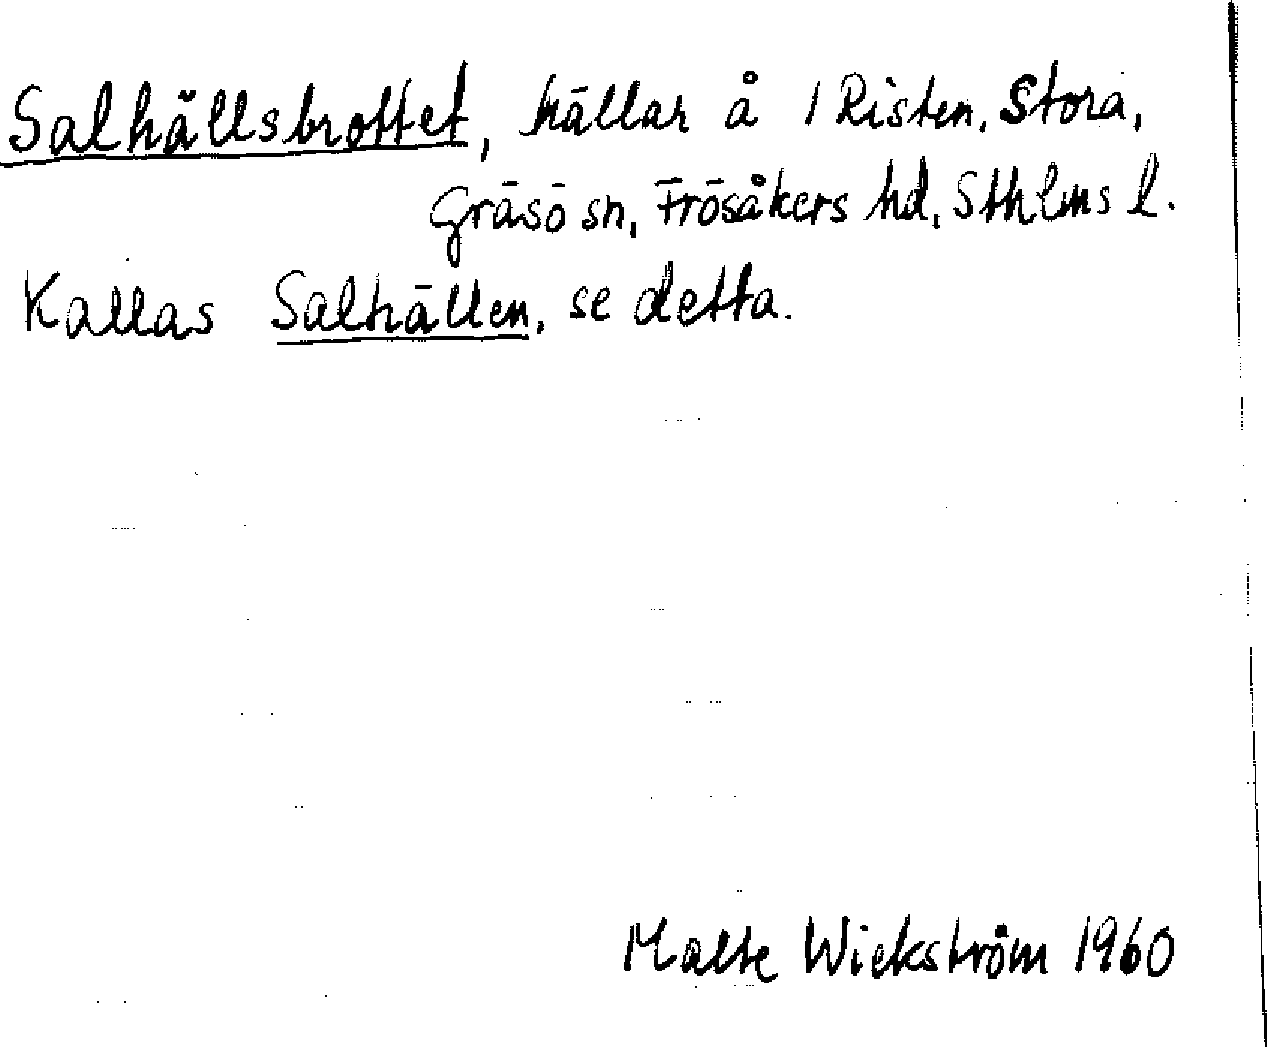 Salhällsbrottet, hällar å 1 Risten, Stora,
Gräsö sn, Frösåkers hd, Sthlms l.
Kallas Salhällen, se detta.
Malte Wickström 1960